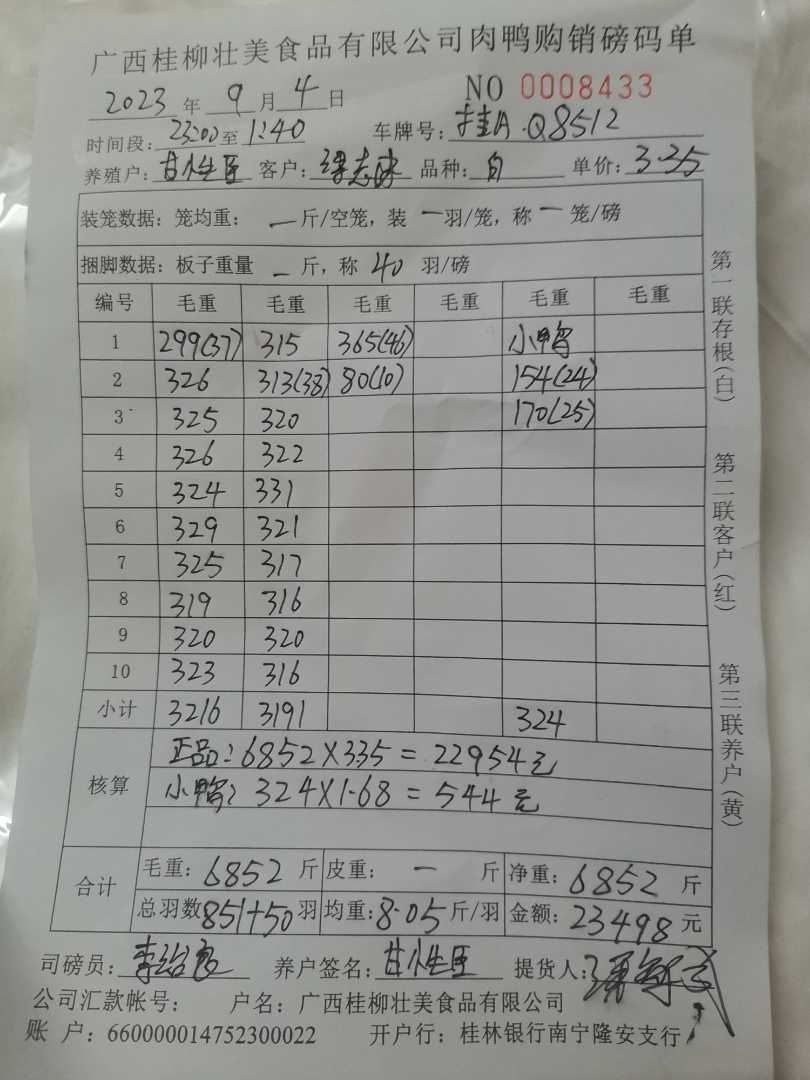 广西桂柳壮美食品有限公司肉鸭购销磅码单
2023 年 9 月 4 日 NO 0008433
时间段: 23:00 至 1:40 车牌号: 桂A·Q8512
养殖户: 甘性臣 客户: 志 品种: 白 单价: 3.35
装笼数据: 笼均重: 一 斤/空笼, 装 一 羽/笼, 称 一 笼/磅
捆脚数据: 板子重量 一 斤, 称 40 羽/磅
编号 毛重 毛重 毛重 毛重 毛重 毛重
1 299(37) 315 365(46) 小鸭
2 326 313(38) 80(10) 154(24)
3 325 320 170(25)
4 326 322
5 324 331
6 329 321
7 325 317
8 319 316
9 320 320
10 323 316
小计 3216 3191 324
核算
正品: 6852×335=22954元
小鸭: 324×1.68=544元
合计
毛重: 6852 斤 皮重: 一 斤 净重: 6852 斤
总羽数 851+50 羽 均重: 8.05 斤/羽 金额: 23498 元
司磅员: 李绍良 养户签名: 甘性臣 提货人:
公司汇款帐号: 户名: 广西桂柳壮美食品有限公司
账 户: 660000014752300022 开户行: 桂林银行南宁隆安支行
第一联存根(白)
第二联客户(红)
第三联养户(黄)